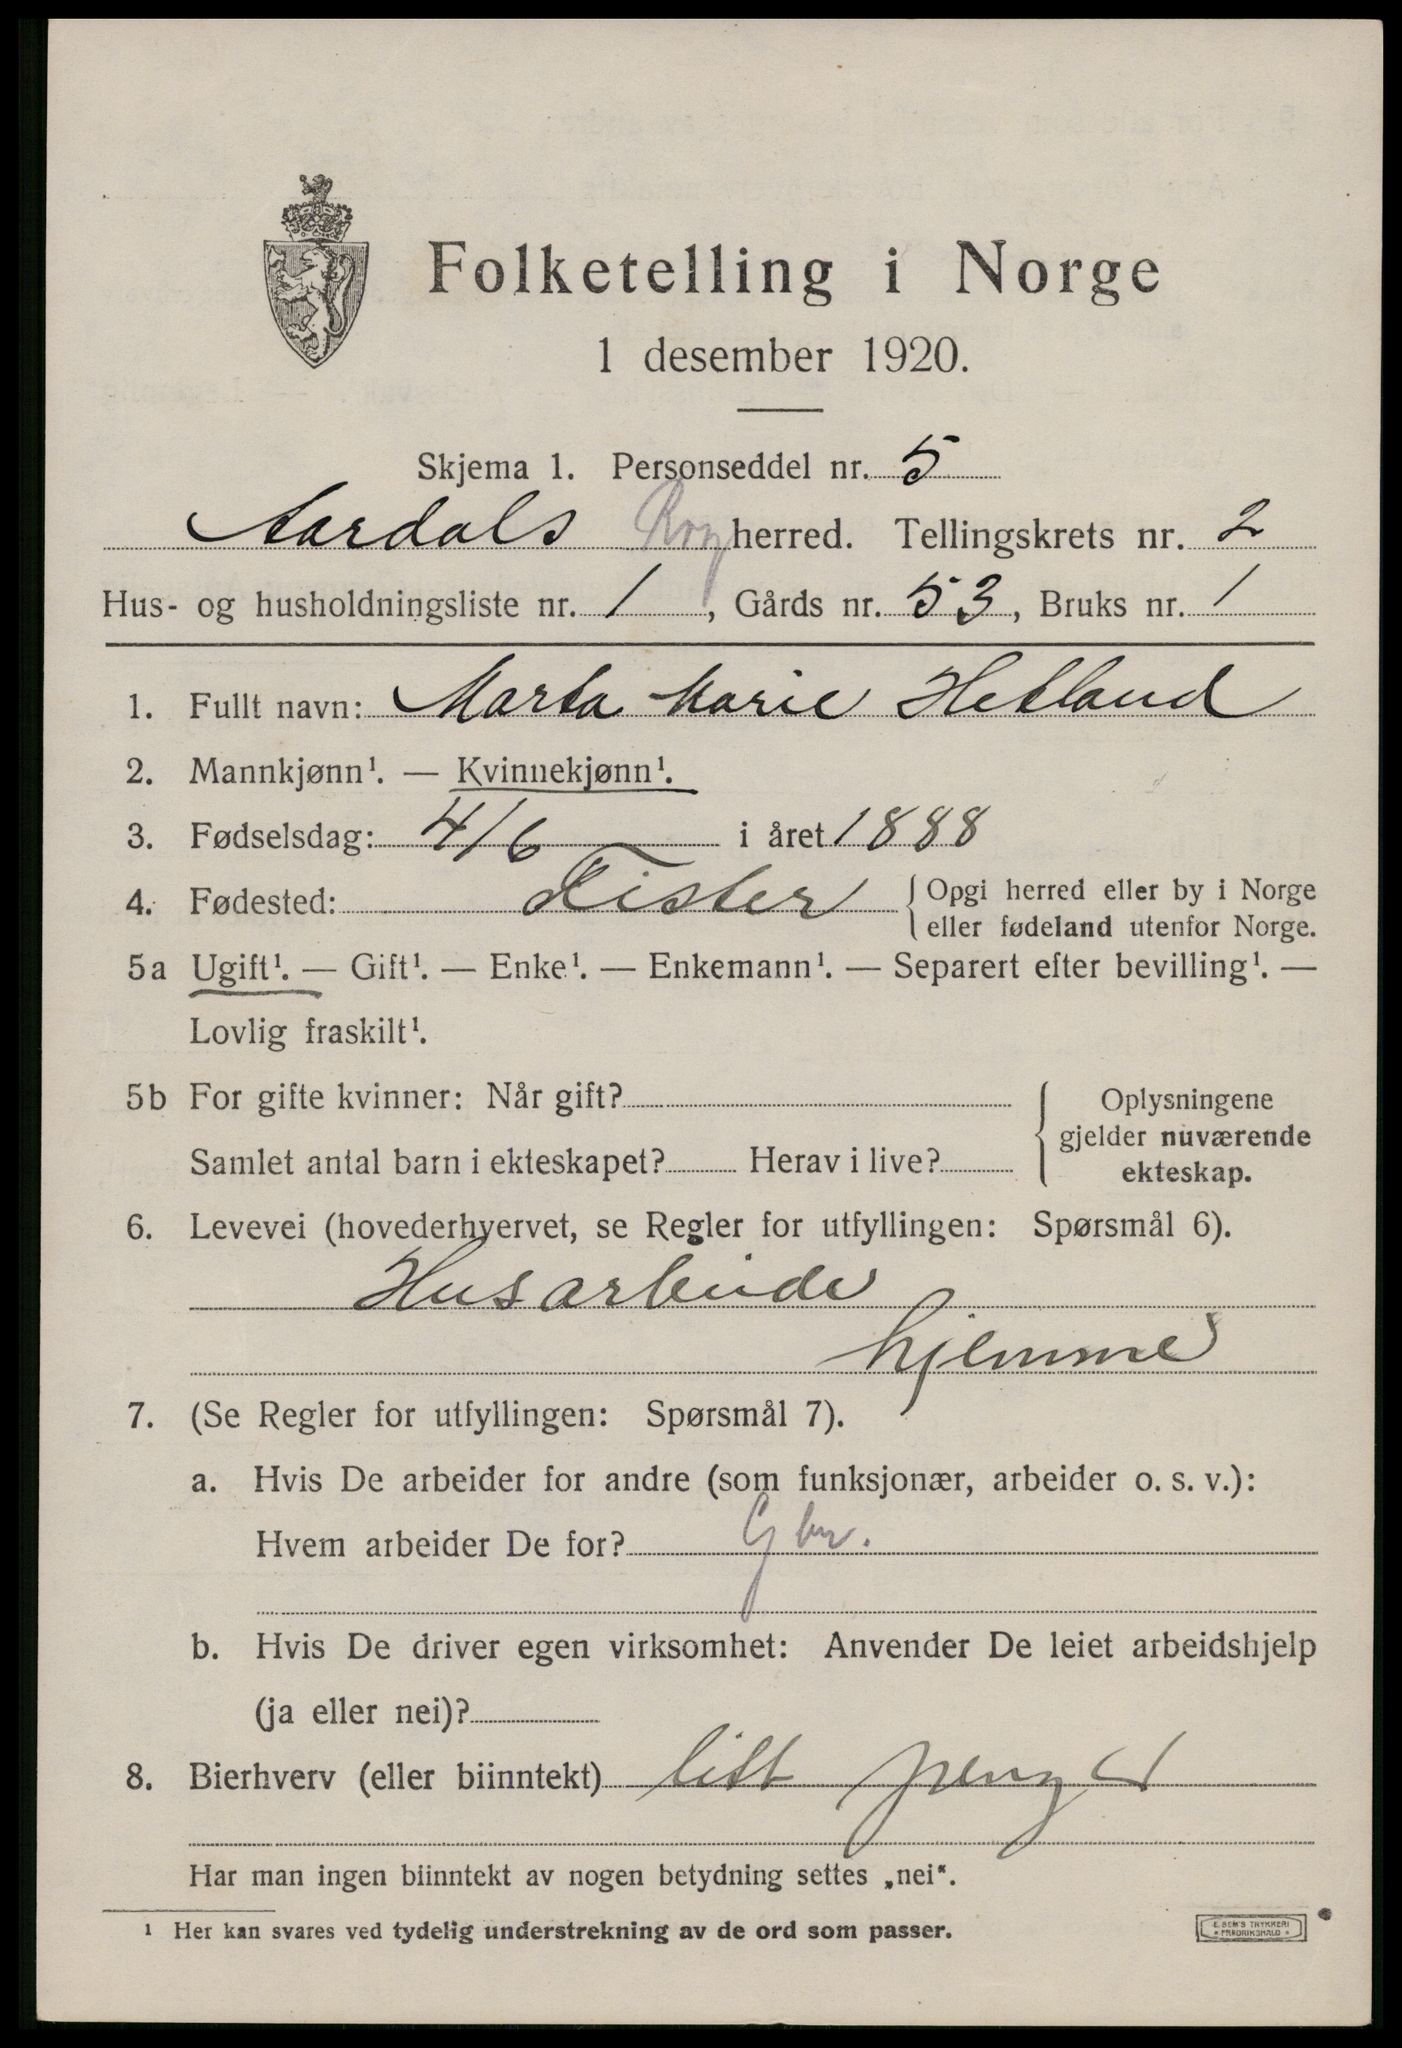 Folketelling i Norge
1 desember 1920.
Skjema 1. Personseddel nr. 5
Aardals Rog herred. Tellingskrets nr. 2
Hus- og husholdningsliste nr. 1, Gårds nr. 53, Bruks nr. 1
1. Fullt navn: Marta Marie Hetland
2. Mannkjønn¹. — Kvinnekjønn¹.
3. Fødselsdag: 4/6 i året 1888
4. Fødested: Fister { Opgi herred eller by i Norge
eller fødeland utenfor Norge.
5a Ugift¹. — Gift¹. — Enke¹. — Enkemann¹. — Separert efter bevilling¹. —
Lovlig fraskilt¹.
5b For gifte kvinner: Når gift?
Samlet antal barn i ekteskapet? Herav i live?
{ Oplysningene
gjelder nuværende
ekteskap.
6. Levevei (hovederhvervet, se Regler for utfyllingen: Spørsmål 6).
Husarbeide
hjemme
7. (Se Regler for utfyllingen: Spørsmål 7).
a. Hvis De arbeider for andre (som funksjonær, arbeider o. s. v.):
Hvem arbeider De for? Gbr.
b. Hvis De driver egen virksomhet: Anvender De leiet arbeidshjelp
(ja eller nei)?
8. Bierhverv (eller biinntekt) litt penger
Har man ingen biinntekt av nogen betydning settes „nei“.
¹ Her kan svares ved tydelig understrekning av de ord som passer.
E. SEM'S TRYKKERI
* FREDRIKSHALD *